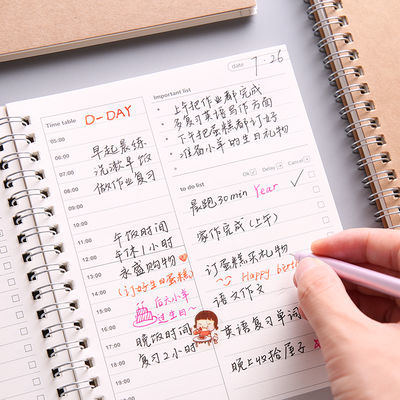 Time table
D-DAY
05:00
06:00
07:00
08:00
09:00
10:00
11:00
12:00
13:00
14:00
15:00
16:00
17:00
18:00
19:00
早起晨练
洗漱早饭
做作业复习
午饭时间
午休1小时
永盛购物
(订好生日蛋糕)
后天小羊
过生日~
晚饭时间
复习2小时
Important list
date
7.26
上午把作业都完成
多复习英语写作方面
下午把蛋糕都订好
准备小羊的生日礼物
to do list
Ok
Delay
Cancel
晨跑30min
Year
家作完成(上午)
订蛋糕买礼物
Happy
语文作文
英语复习单词
晚上收拾屋子